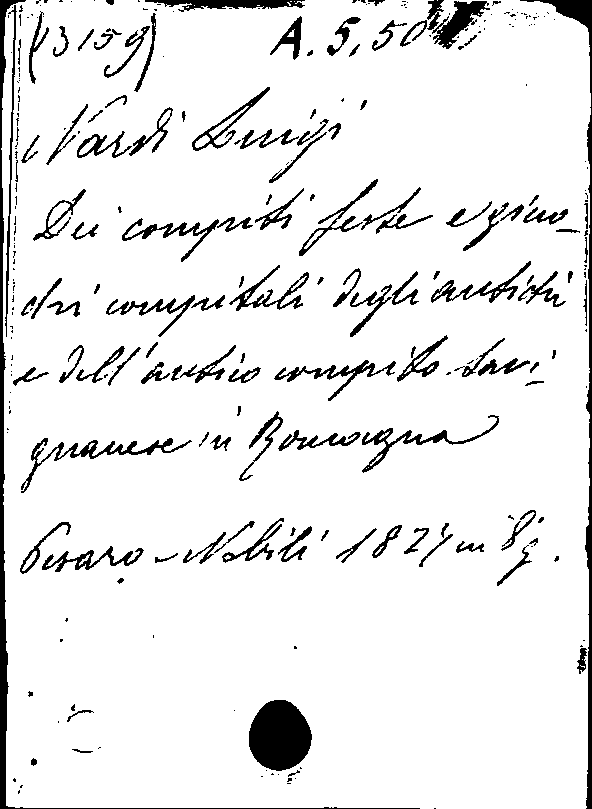 (13159) A.5.50
Nardi Luigi
Dei compiti feste e giuo-
chi compitali degli antichi
e dell'antico compito savi-
gnanese in Romagna
Pesaro - Nobili 1827 in 8º g.